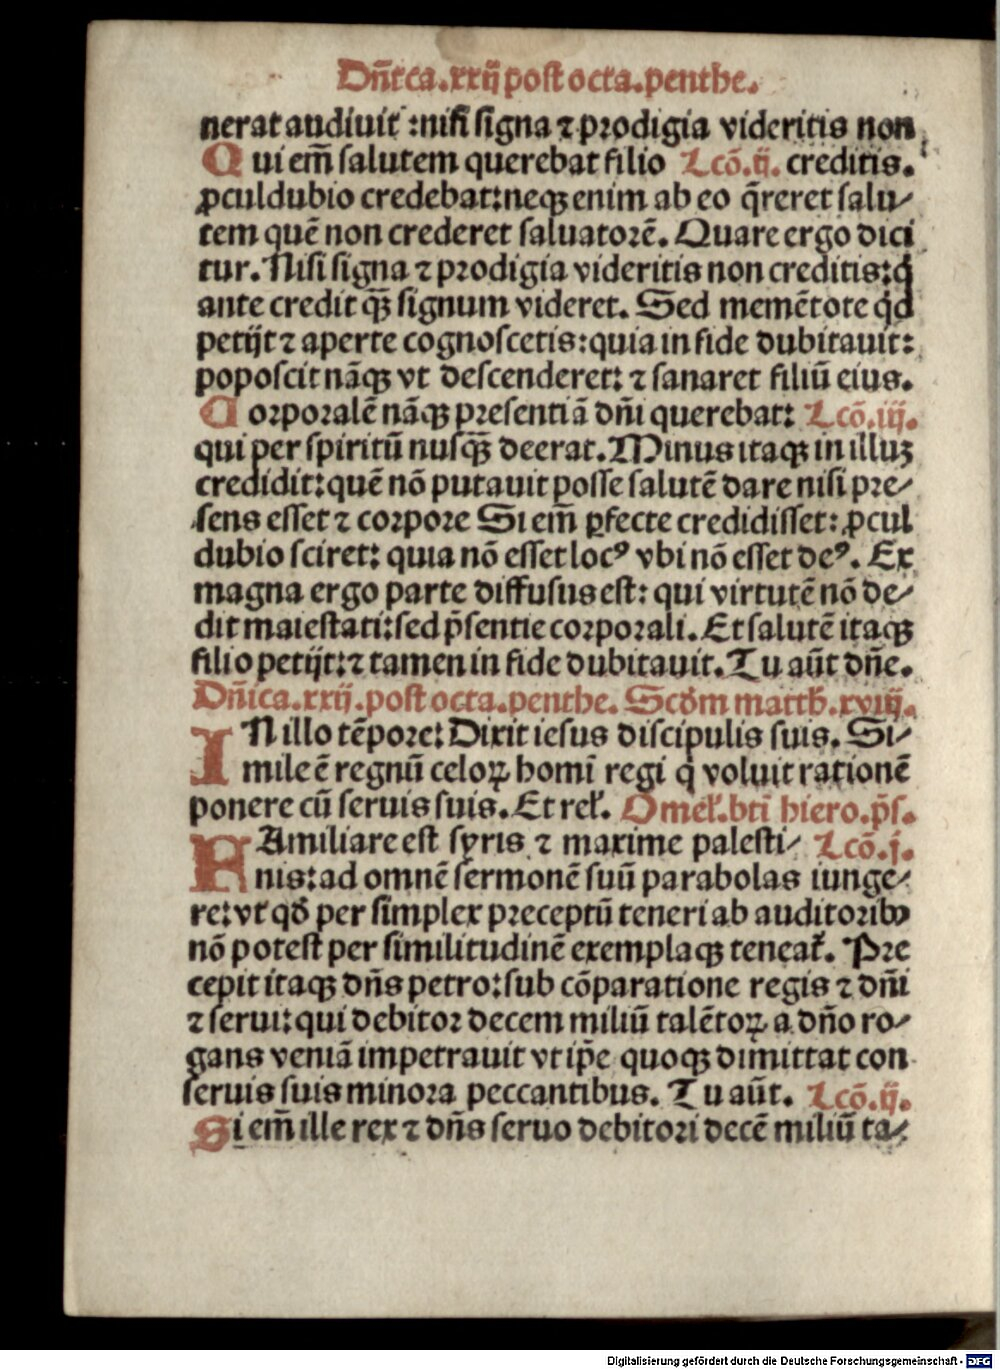 Dñica.xxij post octa.penthe.
nerat audiuit :nisi signa ⁊ prodigia videritis non
Qui em̃ salutem querebat filio Lcõ.ij. creditis.
ꝓculdubio credebat:neqꝫ enim ab eo q̃reret salu⸗
tem quẽ non crederet saluatorẽ. Quare ergo dici
tur. Nisi signa ⁊ prodigia videritis non creditis:q̇
ante credit q̃ꝫ signum videret. Sed memẽtote qd̓
petijt ⁊ aperte cognoscetis:quia in fide dubitauit:
poposcit nãqꝫ vt descenderet: ⁊ sanaret filiũ eius.
Corporalẽ nãqꝫ presentiã dñi querebat: Lcõ.iij.
qui per spiritũ nusq̃ꝫ deerat. Minus itaqꝫ in illuꝫ
credidit:quẽ nõ putauit posse salutẽ dare nisi pre⸗
sens esset ⁊ corpore Si em̃ ꝑfecte credidisset: ꝓcul
dubio sciret: quia nõ esset locꝰ vbi nõ esset deꝰ. Ex
magna ergo parte diffusus est: qui virtutẽ nõ de⸗
dit maiestati:sed p̃sentie corporali. Et salutẽ itaqꝫ
filio petijt:⁊ tamen in fide dubitauit. Tu aũt dñe.
Dñica.xxij.post octa.penthe. Scd̓m matth̓.xviij.
IN illo tẽpore: Dixit iesus discipulis suis. Si⸗
mile ẽ regnũ celoꝝ homĩ regi q̇ voluit rationẽ
ponere cũ seruis suis. Et rel̓. Omel̓.bt̃i hiero.p̃s.
FAmiliare est syris ⁊ maxime palesti⸗ Lcõ.j.
nis:ad omnẽ sermonẽ suũ parabolas iunge⸗
re:vt qd̓ per simplex preceptũ teneri ab auditoribꝰ
nõ potest per similitudinẽ exemplaqꝫ teneat̃. Pre
cepit itaqꝫ dñs petro:sub cõparatione regis ⁊ dñi
⁊ serui:qui debitor decem miliũ talẽtoꝝ a dño ro⸗
gans veniã impetrauit vt ip̃e quoqꝫ dimittat con
seruis suis minora peccantibus. Tu aũt. Lcõ.ij.
Si em̃ ille rex ⁊ dñs seruo debitori decẽ miliũ ta⸗
Digitalisierung gefördert durch die Deutsche Forschungsgemeinschaft - DFG